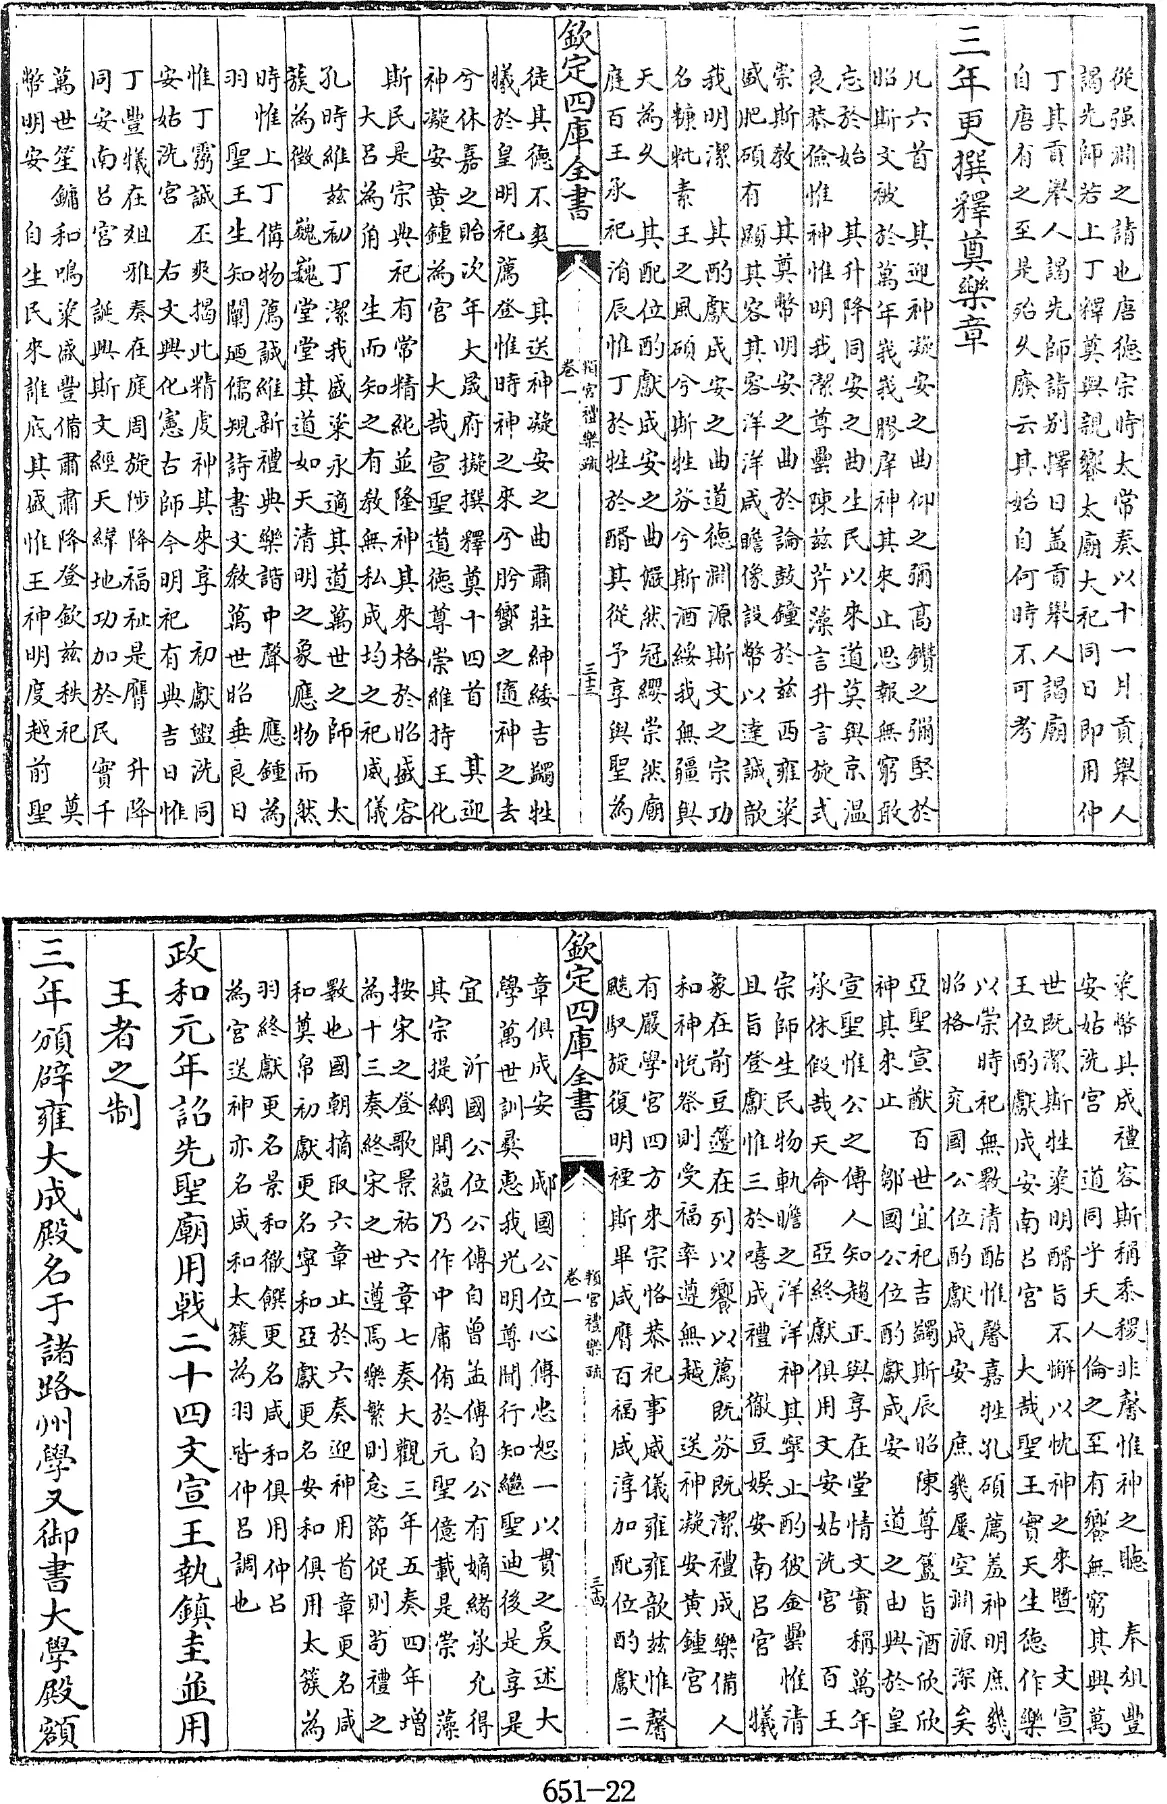 從强淵之請也唐德宗時太常奏以十一月貢舉人
謁先師若上丁釋奠與親饗太廟大祀同日即用仲
丁其貢舉人謁先師請别擇日盖貢舉人謁廟
自唐有之至是殆久廢云其始自何時不可考
三年更撰釋奠樂章
凡六首　其迎神凝安之曲仰之彌高鑽之彌堅於
昭斯文被於萬年峩峩膠庠神其來止思報無窮敢
忘於始　其升降同安之曲生民以來道莫與京温
良恭儉惟神惟明我潔尊罍陳兹芹藻言升言旋式
崇斯敎　其奠幣明安之曲於論鼓鐘於兹西雍粢
盛肥碩有顯其容其容洋洋咸瞻像設幣以達誠歆
我明潔　其酌獻成安之曲道德淵源斯文之宗功
名糠粃素王之風碩兮斯牲芬兮斯酒綏我無疆與
天為久　其配位酌獻成安之曲儼然冠纓崇然廟
庭百王承祀涓辰惟丁於牲於醑其從予享與聖為
欽定四庫全書
頖宮禮樂疏
卷一
三十三
徒其德不爽　其送神凝安之曲肅莊紳緌吉蠲牲
犧於皇明祀薦登惟時神之來兮肸蠁之隨神之去
兮休嘉之貽次年大晟府擬撰釋奠十四首　其迎
神凝安黄鍾為宫　大哉宣聖道德尊崇維持王化
斯民是宗典祀有常精純並隆神其來格於昭盛容
大吕為角　生而知之有敎無私成均之祀威儀
孔時維兹初丁潔我盛粢永適其道萬世之師　太
蔟為徵　巍巍堂堂其道如天清明之象應物而然
時惟上丁備物薦誠維新禮典樂諧中聲　應鍾為
羽　聖王生知闡廼儒規詩書文敎萬世昭垂良日
惟丁靈誠丕爽揭此精虔神其來享　初獻盥洗同
安姑洗宫　右文興化憲古師今明祀有典吉日惟
丁豐犧在俎雅奏在庭周旋陟降福祉是膺　升降
同安南吕宫　誕興斯文經天緯地功加於民實千
萬世笙鏞和鳴粢盛豐備肅肅降登歆兹秩祀　奠
幣明安　自生民來誰底其盛惟王神明度越前聖
粢幣具成禮容斯稱黍稷非馨惟神之聽　奉俎豐
安姑洗宫　道同乎天人倫之至有饗無窮其興萬
世既潔斯牲粢明醑旨不懈以忱神之來曁　文宣
王位酌獻成安南吕宫　大哉聖王實天生德作樂
以崇時祀無斁清酤惟馨嘉牲孔碩薦羞神明庶幾
昭格　兖國公位酌獻成安　庶幾屢空淵源深矣
亞聖宣猷百世宜祀吉蠲斯辰昭陳尊簋旨酒欣欣
神其來止　鄒國公位酌獻成安　道之由興於皇
宣聖惟公之傳人知趨正與享在堂情文實稱萬年
承休假哉天命　亞終獻俱用文安姑洗宫　百王
宗師生民物軌瞻之洋洋神其寧止酌彼金罍惟清
且旨登獻惟三於嘻成禮　徹豆娛安南吕宫　犧
象在前豆籩在列以饗以薦既芬既潔禮成樂備人
和神悅祭則受福率遵無越　送神凝安黄鍾宫
有嚴學宫四方來宗恪恭祀事威儀雍雍歆兹惟馨
飈馭旋復明禋斯畢咸膺百福咸淳加配位酌獻二
欽定四庫全書
頖宮禮樂疏
卷一
三十四
章俱成安　郕國公位心傳忠恕一以貫之爰述大
學萬世訓彛惠我光明尊聞行知繼聖迪後是享是
宜　沂國公位公傳自曾孟傳自公有嫡緒承允得
其宗提綱開藴乃作中庸侑於元聖億載是崇　藻
按宋之登歌景祐六章七奏大觀三年五奏四年增
為十三奏終宋之世遵焉樂繁則怠節促則苟禮之
數也國朝摘取六章止於六奏迎神用首章更名咸
和奠帛初獻更名寧和亞獻更名安和俱用太簇為
羽終獻更名景和徹饌更名咸和俱用仲吕
為宫送神亦名咸和太簇為羽皆仲吕調也
政和元年詔先聖廟用戟二十四文宣王執鎮圭並用
王者之制
三年頒辟雍大成殿名于諸路州學又御書大學殿額
651-22